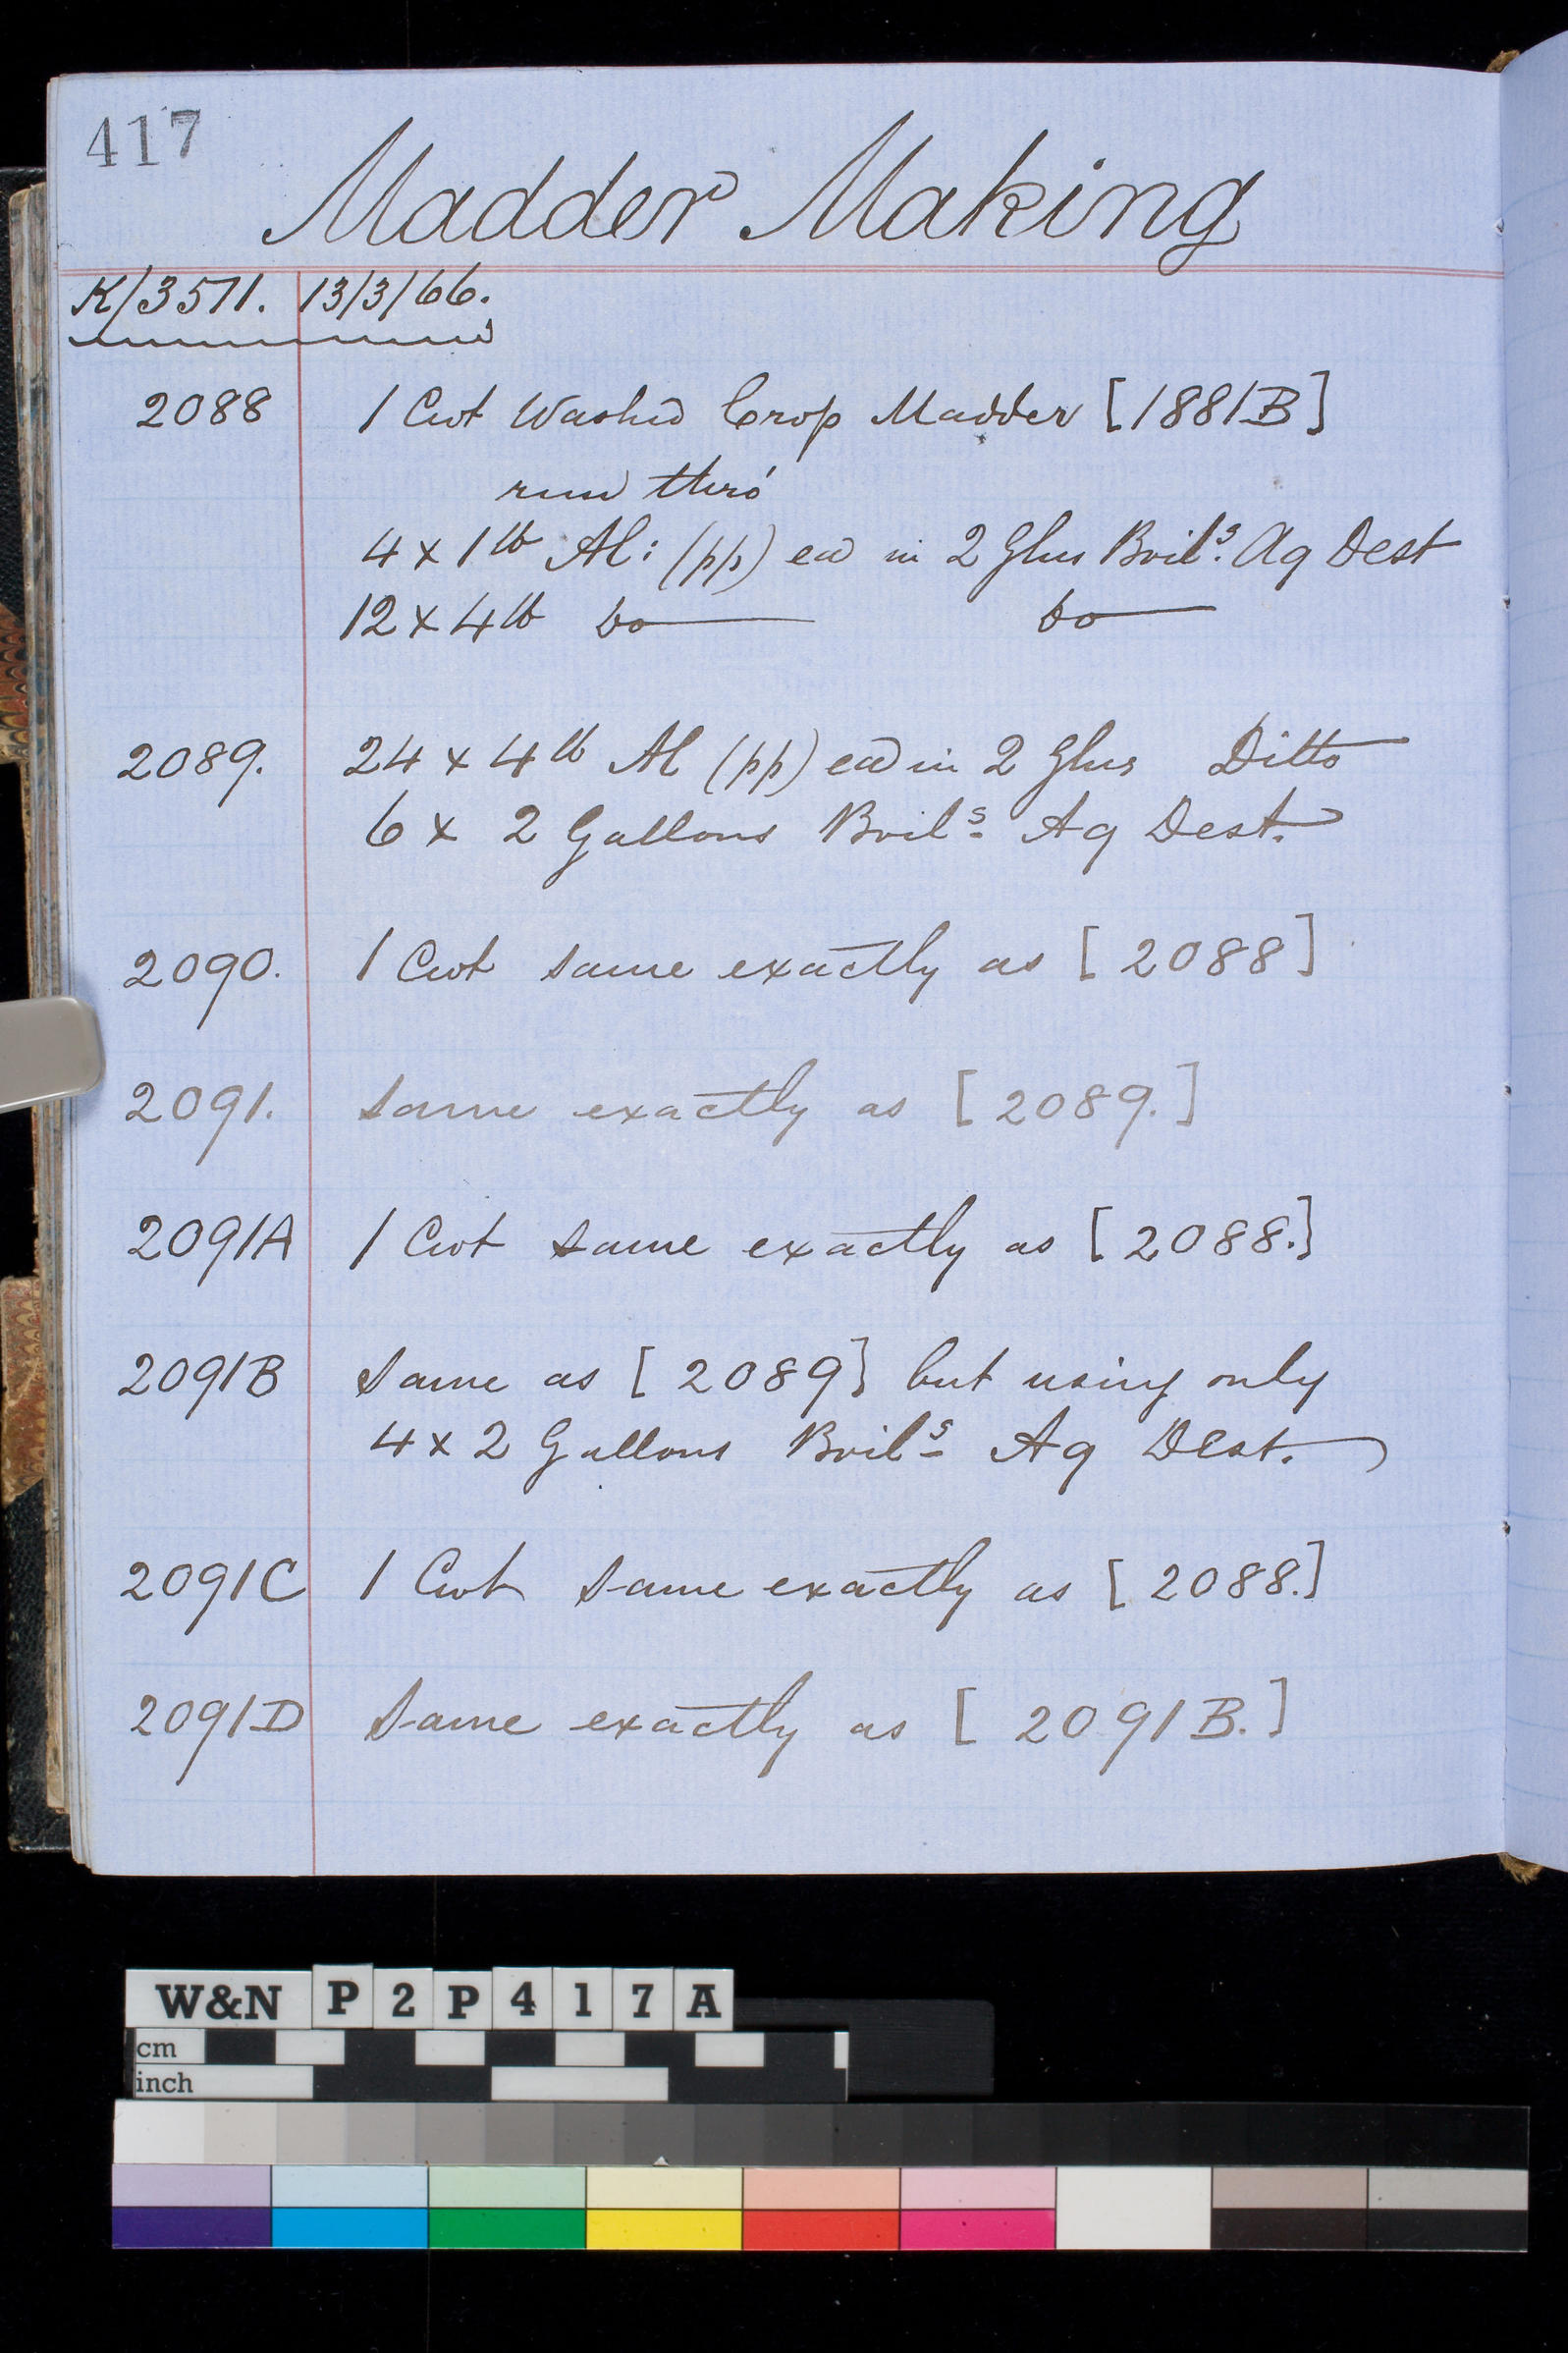 417
Madder Making
K/3571. 13/3/66.
2088 1 Cwt Washed Crop Madder [1881B]
run thro'
4 x 1 lb Al: (pp) ea in 2 Glns Boil^g. Aq Dest
12 x 4 lb Do Do
2089. 24 x 4 lb Al (pp) ea in 2 Glns Ditto
6 x 2 Gallons Boil^g Aq Dest.
2090. 1 Cwt same exactly as [2088]
2091. Same exactly as [2089.]
2091A 1 Cwt same exactly as [2088.]
2091B Same as [2089] but using only
4 x 2 Gallons Boil^g Aq Dest.
2091C 1 Cwt Same exactly as [2088.]
2091D Same exactly as [2091B.]
W&N P2P417A
cm
inch